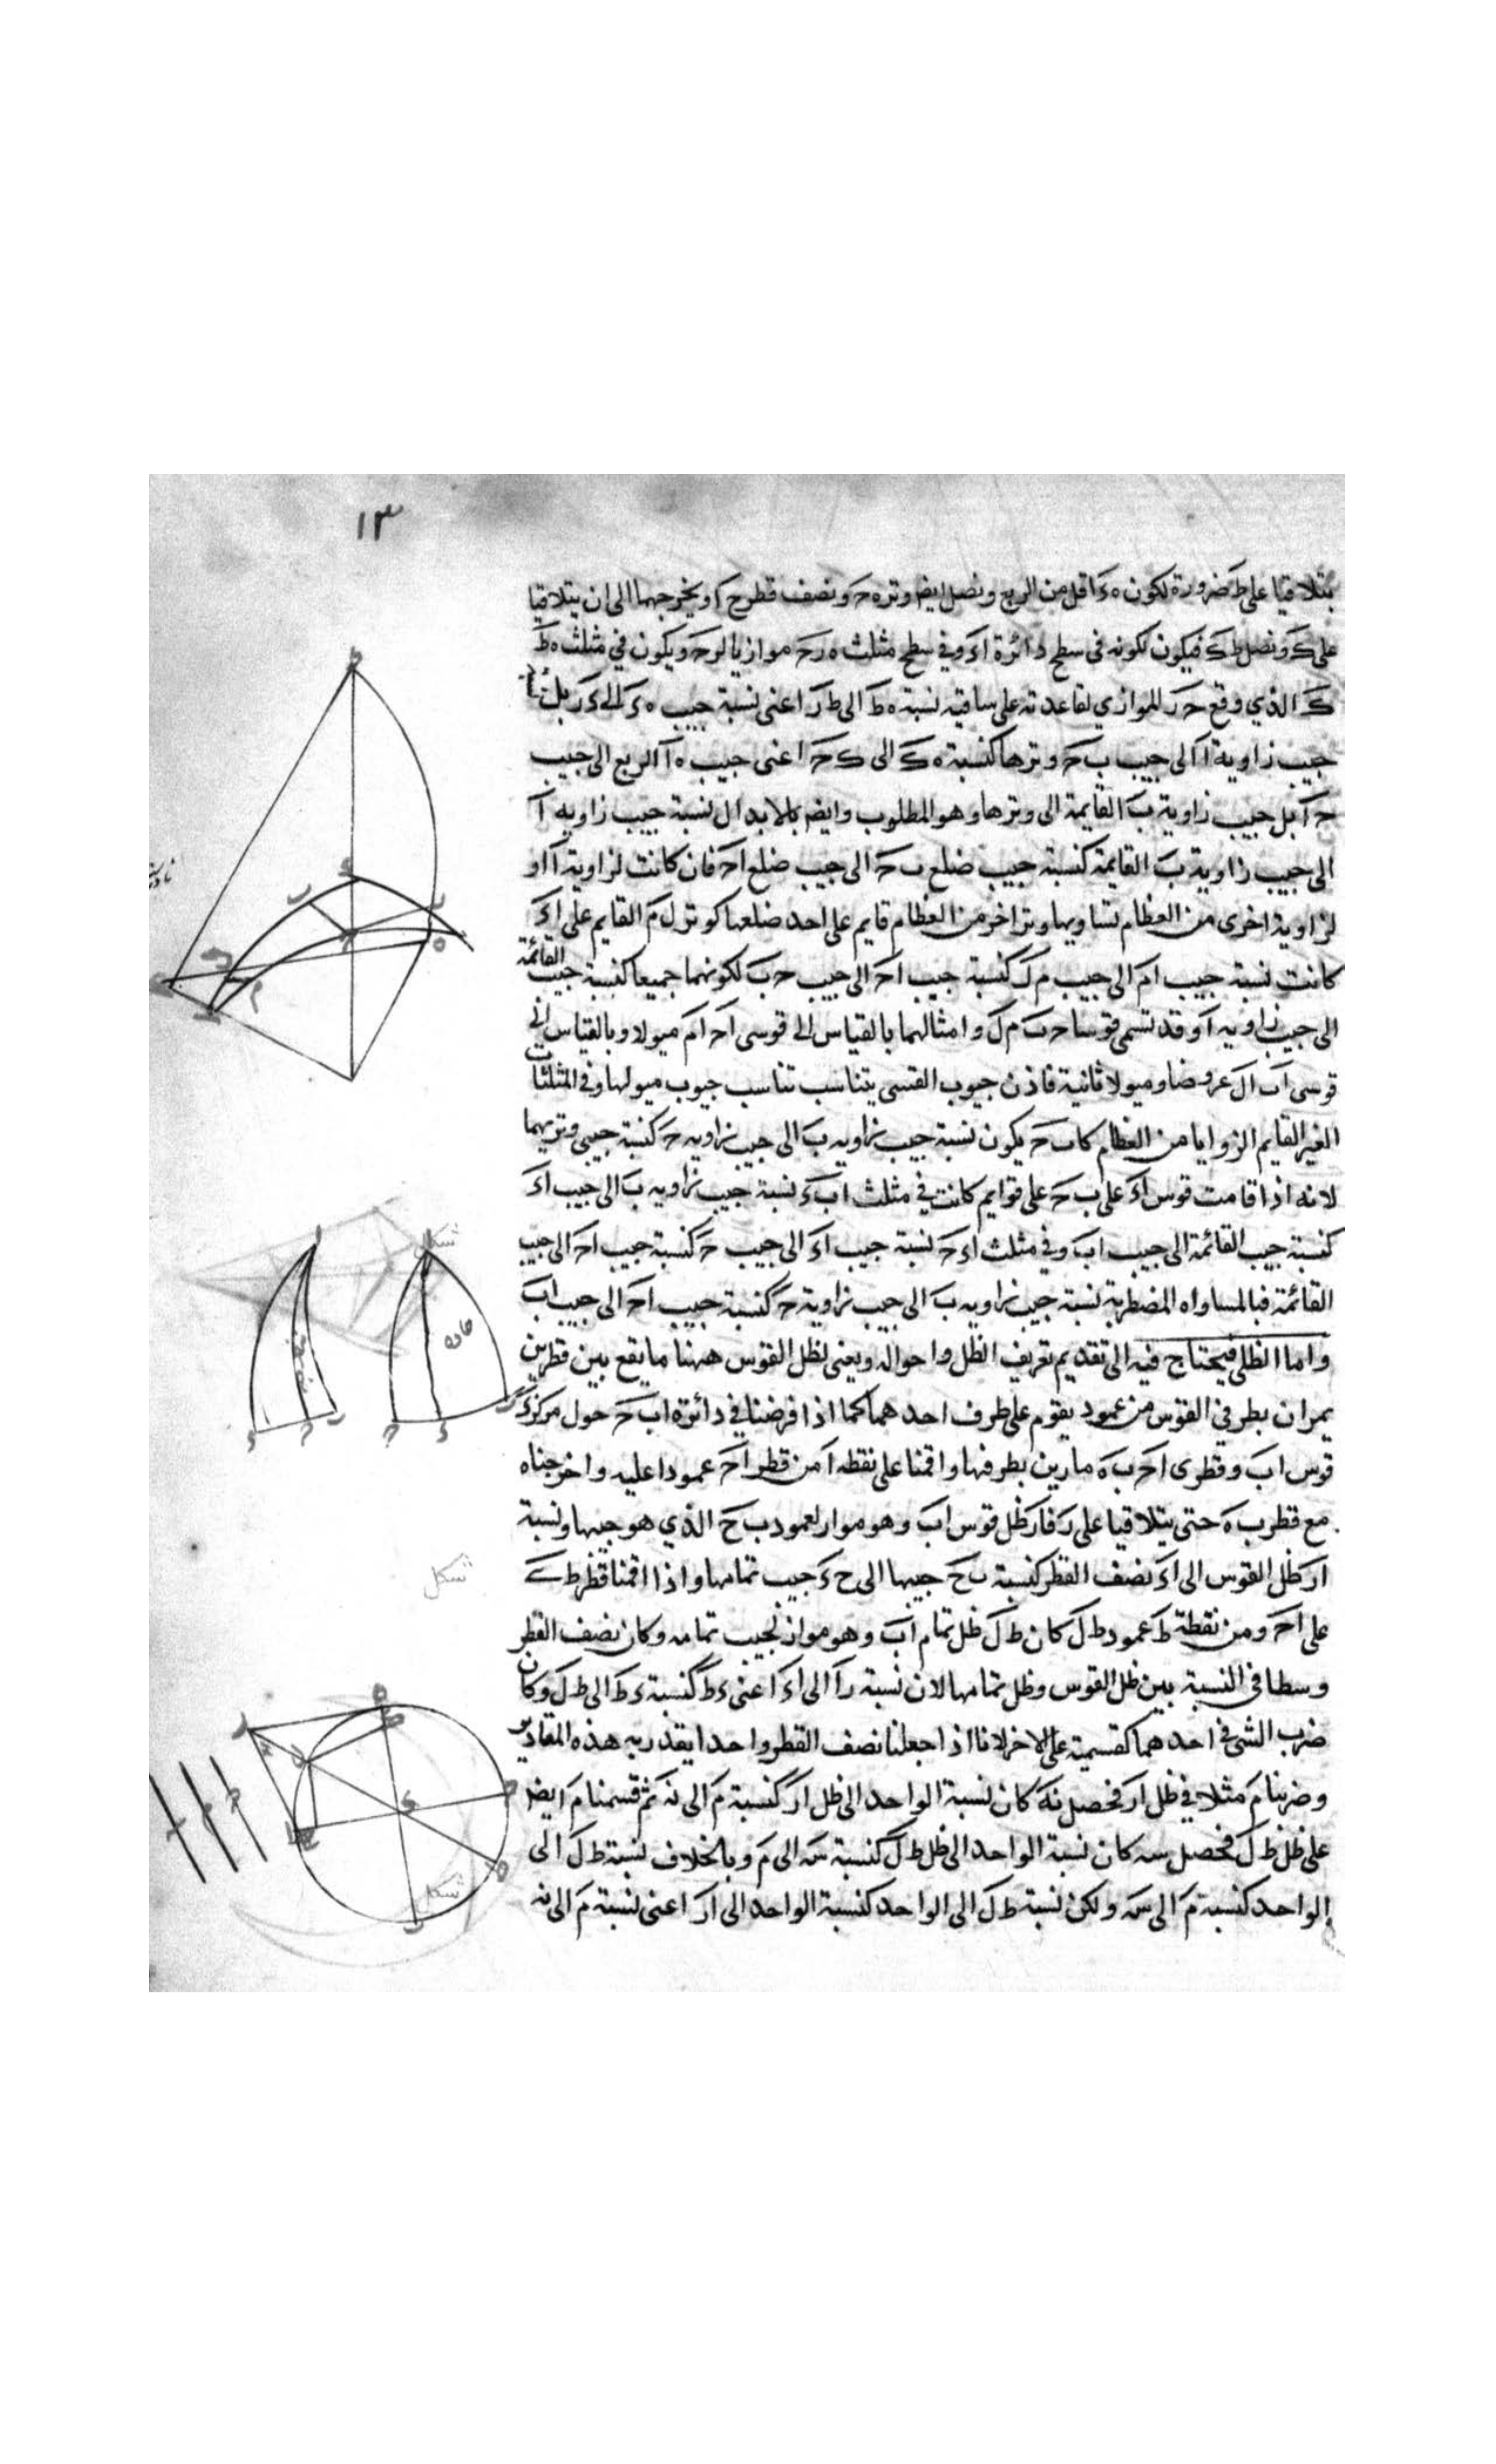 ١٣
يتلاقيا على ط ضرورة لكون ه ء اقل من الربع ونصل ايضا وتر ه ح ونصف قطر ح ا ويخرجهما الى ان يتلاقيا
على ك ونصل ط ك فيكون لكونه في سطح دائرة ا ء وفي سطح مثلث ه ر ح موازيا لر ح ويكون في مثلث ه ط
ك الذي وقع ح ر الموازي لقاعدته على ساقيه نسبة ه ط الى ط ر اعنى نسبة جيب ه ء الى ء ر بل
جيب زاوية ا الى جيب ب ح وترها كنسبة ه ك الى ك ح اعنى جيب ه ا الربع الى جيب
ح ا بل جيب زاوية ب القايمة الى وترها وهو المطلوب وايضا بالابدال نسبة جيب زاويه ا
الى جيب زاوية ب القايمة كنسبة جيب ضلع ب ح الى جيب ضلع ا ح فان كانت لزاوية ا او
لزاوية اخرى من العظام تساويها وتر اخر من العظام قايم على احد ضلعها كوتر ل م القايم على ا ء
كانت نسبة جيب ا م الى جيب م ل كنسبة جيب ا ح الى جيب ح ب لكونهما جميعا كنسبة جيب القائمة
الى جيب زاويه ا وقد تسمى قوسا ح ب م ل وامثالهما بالقياس الى قوسى ا ح ا م ميولا وبالقياس الى
قوسى ا ب ا ل عروضا وميولا ثانية فاذن جيوب القسى يتناسب تناسب جيوب ميولها وفى المثلثات
الغير القايم الزوايا من العظام كا ب ح يكون نسبة جيب زاويه ب الى جيب زاويه ح كنسبة جيبى وتريهما
لانه اذا قامت قوس ا ء على ب ح على قوايم كانت في مثلث ا ب ء نسبة جيب زاويه ب الى جيب ا ء
كنسبة جيب القائمة الى جيب ا ب وفى مثلث ا ء ح نسبة جيب ا ء الى جيب ح كنسبة جيب ا ح الى جيب
القائمة فبالمساواه المضطربة نسبة جيب زاويه ب الى جيب زاوية ح كنسبة جيب ا ح الى جيب ا ب
واما الظلى فيحتاج فيه الى تقديم تعريف الظل واحواله ويعنى لظل القوس ههنا ما يقع بين قطرين
يمران بطرفي القوس من عمود يقوم على طرف احدهما كما اذا فرضنا في دائرة ا ب ح حول مركز ء
قوس ا ب وقطرى ا ح ب ه مارين بطرفها واقمنا على نقطه ا من قطر ا ح عمودا عليه واخرجناه
مع قطر ب ه حتى يتلاقيا على ر فا ر ظل قوس ا ب وهو مواز لعمود ب ح الذي هو جيبها ونسبة
ا ر ظل القوس الى ا ء نصف القطر كنسبة ب ح جيبها الى ح ء جيب تمامها واذا اقمنا قطر ط ى
على ا ح ومن نقطة ط عمود ط ل كان ط ل ظل تمام ا ب وهو مواز لجيب تمامه وكان نصف القطر
وسطا في النسبة بين ظل القوس وظل تمامها لان نسبة ر ا الى ا ء اعنى ء ط كنسبة ء ط الى ط ل وكان
ضرب الشى في احدهما كقسمته على الاخر لانا اذا جعلنا نصف القطر واحدا يقدر به هذه المقادير
وضربنا م مثلا في ظل ا ر فحصل نه كان نسبة الواحد الى ظل ا ر كنسبة م الى نه ثم قسمنا م ايضا
على ظل ط ل فحصل سه كان نسبة الواحد الى ظل ط ل كنسبة سه الى م وبالخلاف نسبة ط ل الى
الواحد كنسبة م الى سه ولكن نسبة ط ل الى الواحد كنسبة الواحد الى ا ر اعنى نسبة م الى نه
شكل
حاده
منفرجه
شكل
شكل